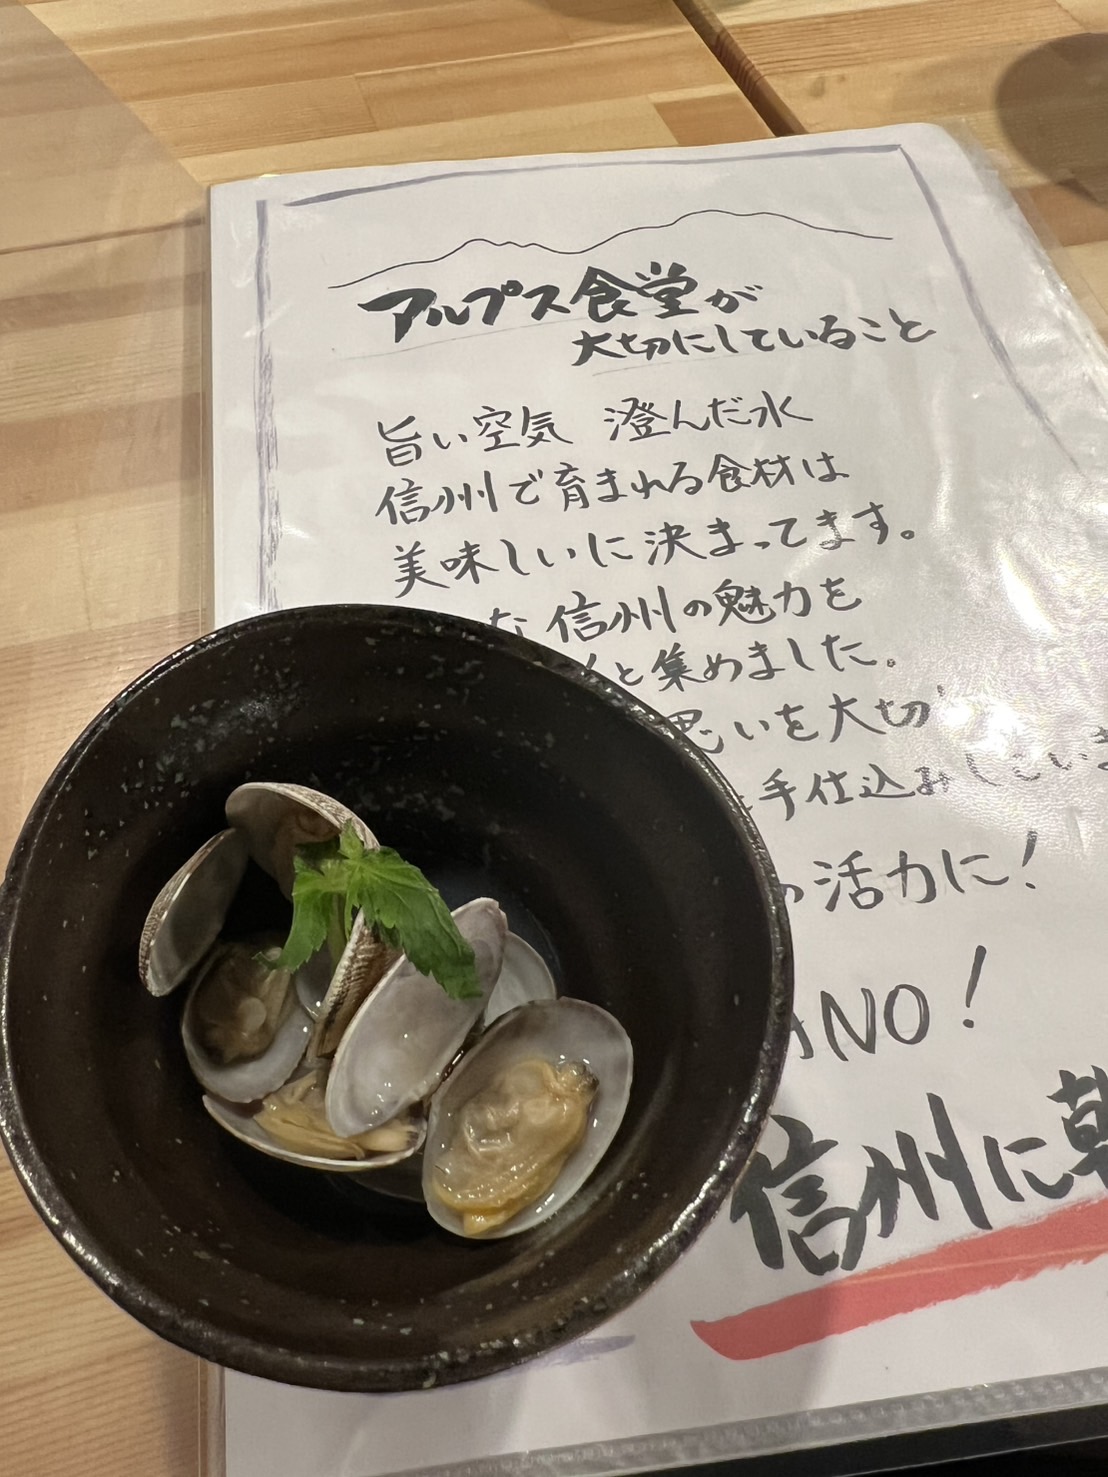 アルプス食堂が
大切にしていること
旨い空気 澄んだ水
信州で育まれる食材は
美味しいに決まってます。
な信州の魅力を
と集めました。
思いを大切
手仕込みしてい
の活力に!
ANO!
信州に乾